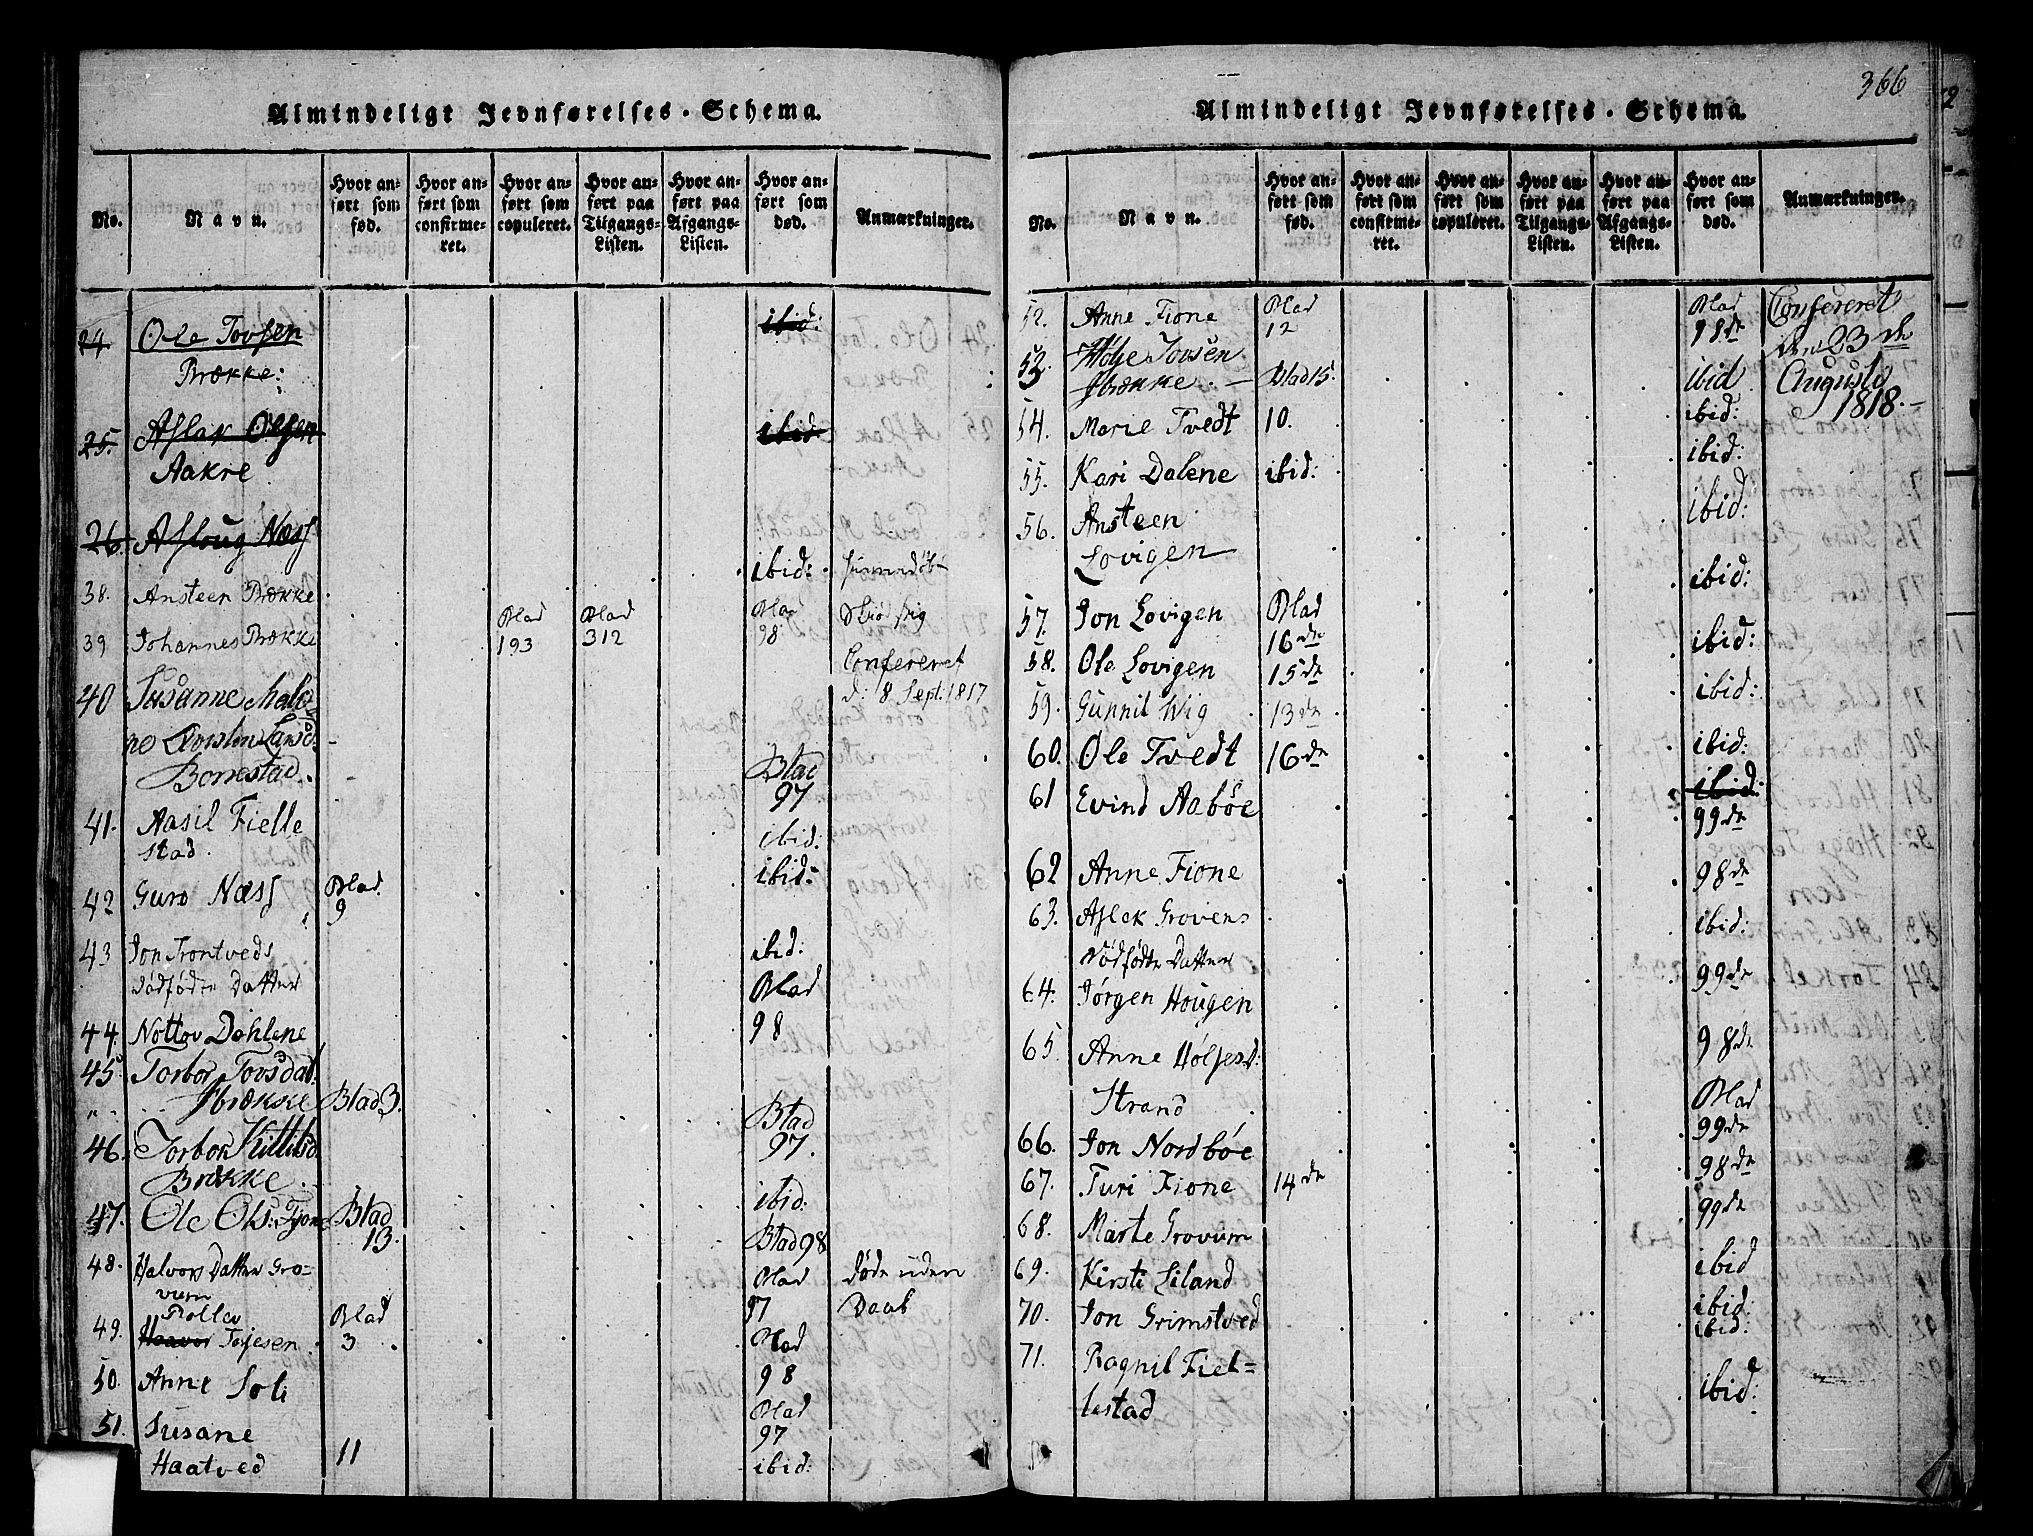 Almindeligt Jevnførelses-Schema.
No.
Navn.
Hvor anført som fød.
Hvor anført som confirmeret.
Hvor anført som copuleret.
Hvor anført paa Tilgangs-Listen.
Hvor anført paa Afgangs-Listen.
Hvor anført som død.
Anmærkninger.
24. Ole Tovsen ibid:
Brække:
25. Aslak Olsen ibid:
Aakre
26. Asloug Næss
38. Ansteen Brække ibid:
39 Johannes Brække Blad 193 Blad 312 Blad 98
Confereret
d: 8 Sept: 1817
40 Susanne Male=
ne
Borrestad. Blad 97
41. Aasil Fielle
stad. ibid:
42 Guro Næss Blad 9 ibid:
43 Jon Trontveds
dødfødte Datter ibid:
44. Nottov Dahlene Blad 98
45 Torbor Tovsdat:
Brække Blad 3. Blad 97.
46. Torbor Kittilsd
Brække ibid:
47. Ole Ols: Fjone Blad 13. Blad 98
48. Halvors Datter Gro=
vum Blad 97 døde uden Daab
Rollev
49. Halvor Torjesen Blad 3 Blad 98
50. Anne Soli Blad 97
51. Susane
Haatved 11 ibid:
366
Almindeligt Jevnførelses-Schema.
No.
Navn.
Hvor anført som fød.
Hvor anført som confirmeret.
Hvor anført som copuleret.
Hvor anført paa Tilgangs-Listen.
Hvor anført paa Afgangs-Listen.
Hvor anført som død.
Anmærkninger.
52. Anne Fione Blad 12 Blad 98de Confereret
den 23de
53. Høye Tovsen
Brække. Blad 15. ibid Augusti
1818.
54. Marie Tvedt 10. ibid:
55. Kari Dalene ibid: ibid:
56. Ansteen
Lovigen ibid:
57. Jon Lovigen Blad 16de ibid:
58. Ole Lovigen 15de ibid:
59. Gunnil Wig 13de ibid:
60. Ole Tvedt 16de ibid:
61 Evind Aabøe ibid: 99de
62 Anne Fione 98de
63. Aslek Grovens
Dødfødte Datter ibid:
64. Jørgen Hougen 99de
65. Anne Høljesd:
Strand 98de
66. Jon Nordbøe Blad 99de
67. Turi Fione 14de 98de
68. Marte Grovum 99de
69. Kirsti Liland ibid
70. Jon Grimstved ibid:
ibid:
71. Ragnil Fiel=
lestad ibid: